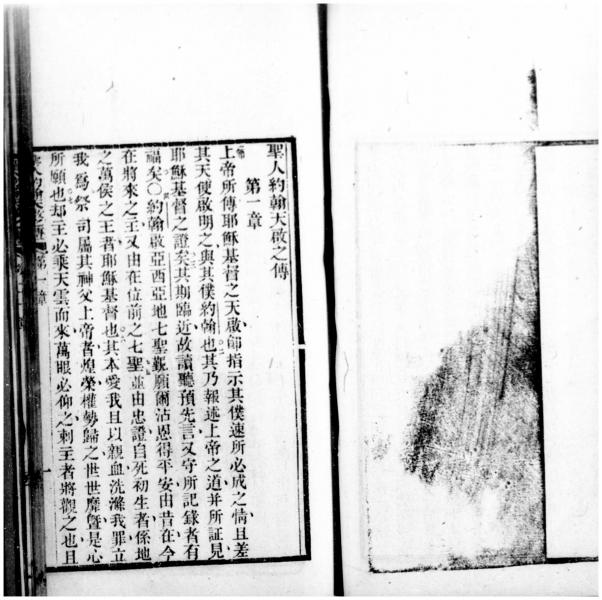 聖人約翰天啟之傳
第一章
第一 上帝所傳耶穌基督之天啟師指示其僕速所必成之情且差
其天使啟明之與其僕約翰也其乃報述上帝之道并所証見
耶穌基督之證矣其期臨近故讀聽預先言又守所記錄者有
福矣○約翰啟亞西亞地七聖覲願爾沾恩得平安由昔在今
在將來之王又由在位前之七聖並由忠證自死初生者係地
之萬侯之王者耶穌基督也其本愛我且以親血洗滌我罪立
我為祭司屬其神父上帝者煌榮權勢歸之世世靡曁是心
所願也却王必乘天雲而來萬眼必仰之刺王者將觀之也且
第一章